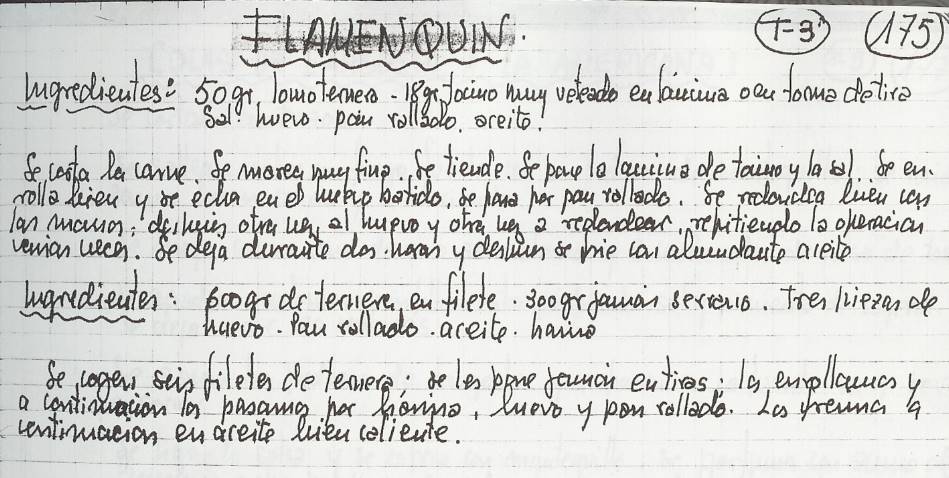 FLAMENQUIN. T-3º 175
Ingredientes: 50 gr lomo ternera - 18 gr tocino muy veteado en lámina o en forma de tira
Sal. huevo. pan rallado. aceite.
Se corta la carne. Se marea muy fina. Se tiende. Se pone la lámina de tocino y la sal. Se en-
rolla bien y se echa en el huevo batido, se pasa por pan rallado. Se redondea bien con
las manos; después otra vez al huevo y otra vez a redondear, repitiendo la operación
varias veces. Se deja durante dos horas y después se fríe con abundante aceite
Ingredientes: 600 gr de ternera en filete. 300 gr jamón serrano. Tres piezas de
huevo. Pan rallado. aceite. harina
Se cogen seis filetes de ternera; se les pone jamón en tiras; los enrollamos y
a continuación los pasamos por harina, huevo y pan rallado. Los freimos a
continuación en aceite bien caliente.